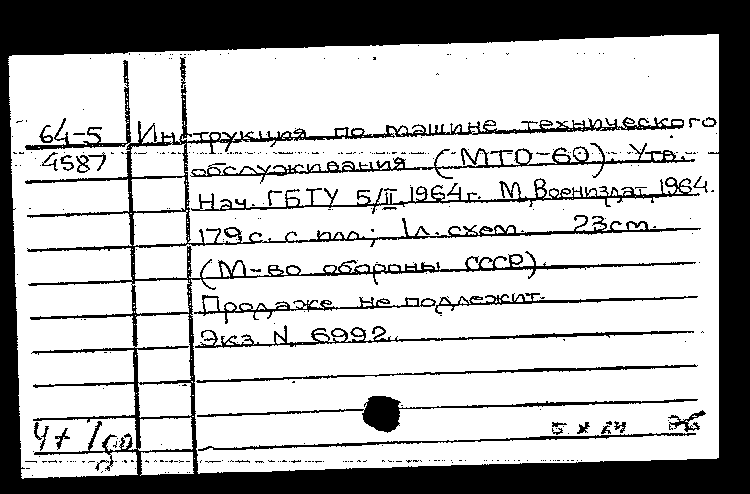 64-5 Инструкция по машине технического
4587 обслуживания (МТО-60). Утв.
Нач. ГБТУ 5/II 1964г. М, Воениздат, 1964.
179 с. с илл.; 1л. схем. 23см.
(М-во обороны СССР).
Продаже не подлежит.
Экз. N 6992.